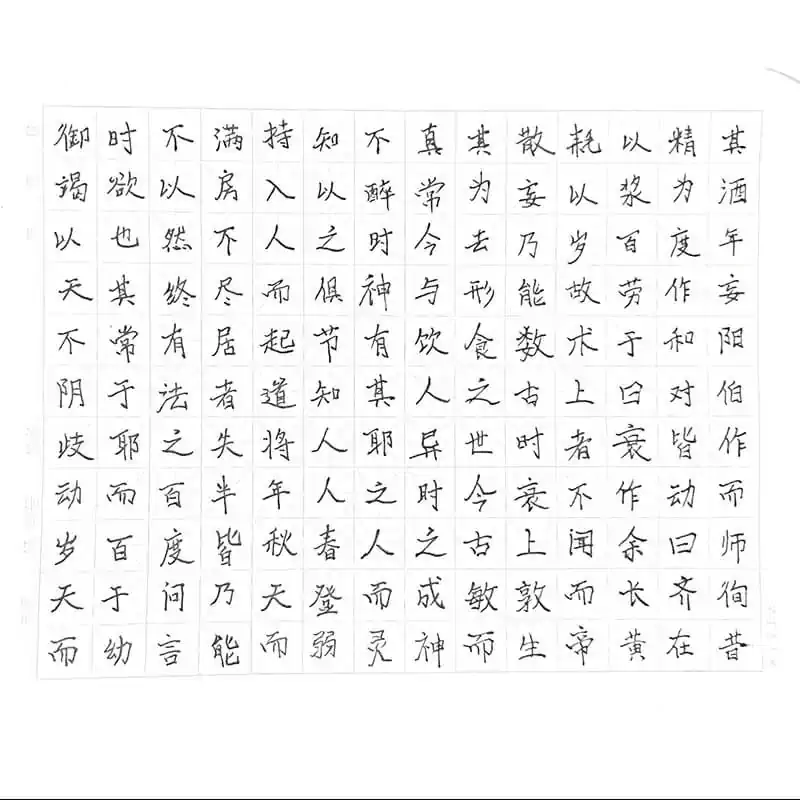 昔在黄帝生而神灵弱而能言幼而
徇齐长而敦敏成而登天乃问于天
师曰余闻上古之人春秋皆度百岁
而动作不衰今时之人年半百而动
作皆衰者时世异耶人将失之耶歧
伯对曰上古之人其知道者法于阴
阳和于术数食饮有节起居有常不
妄作劳故能形与神俱而尽终其天
年度百岁乃去今时之人不然也以
酒为浆以妄为常醉以入房以欲竭
其精以耗散其真不知持满不时御